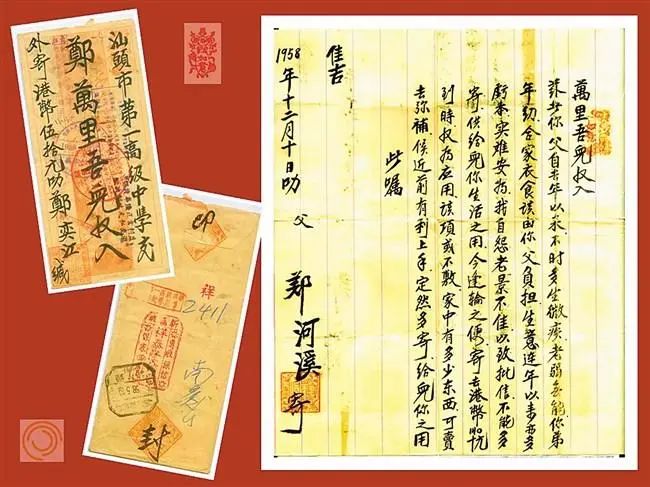 汕頭市第一高級中學交
鄭萬里吾兒收入
外寄港幣伍拾元叻鄭奕江緘
印
祥
2411
封
萬里吾兒收入
你父自去年以來不時多生微疾老弱無能你弟
年幼合家衣食該由你父負担生意連年以來多
虧本实难安我自怨老景不佳以致批信不能多
寄供給兒你生活之用今逢輪之便寄去港幣
到時收為应用該項或不敷家中有多少東西可賣
去弥補候近前有利上手定然多寄給兒你之用
此嘱
佳吉
1958年十二月十日叻 父 郑河溪 寄